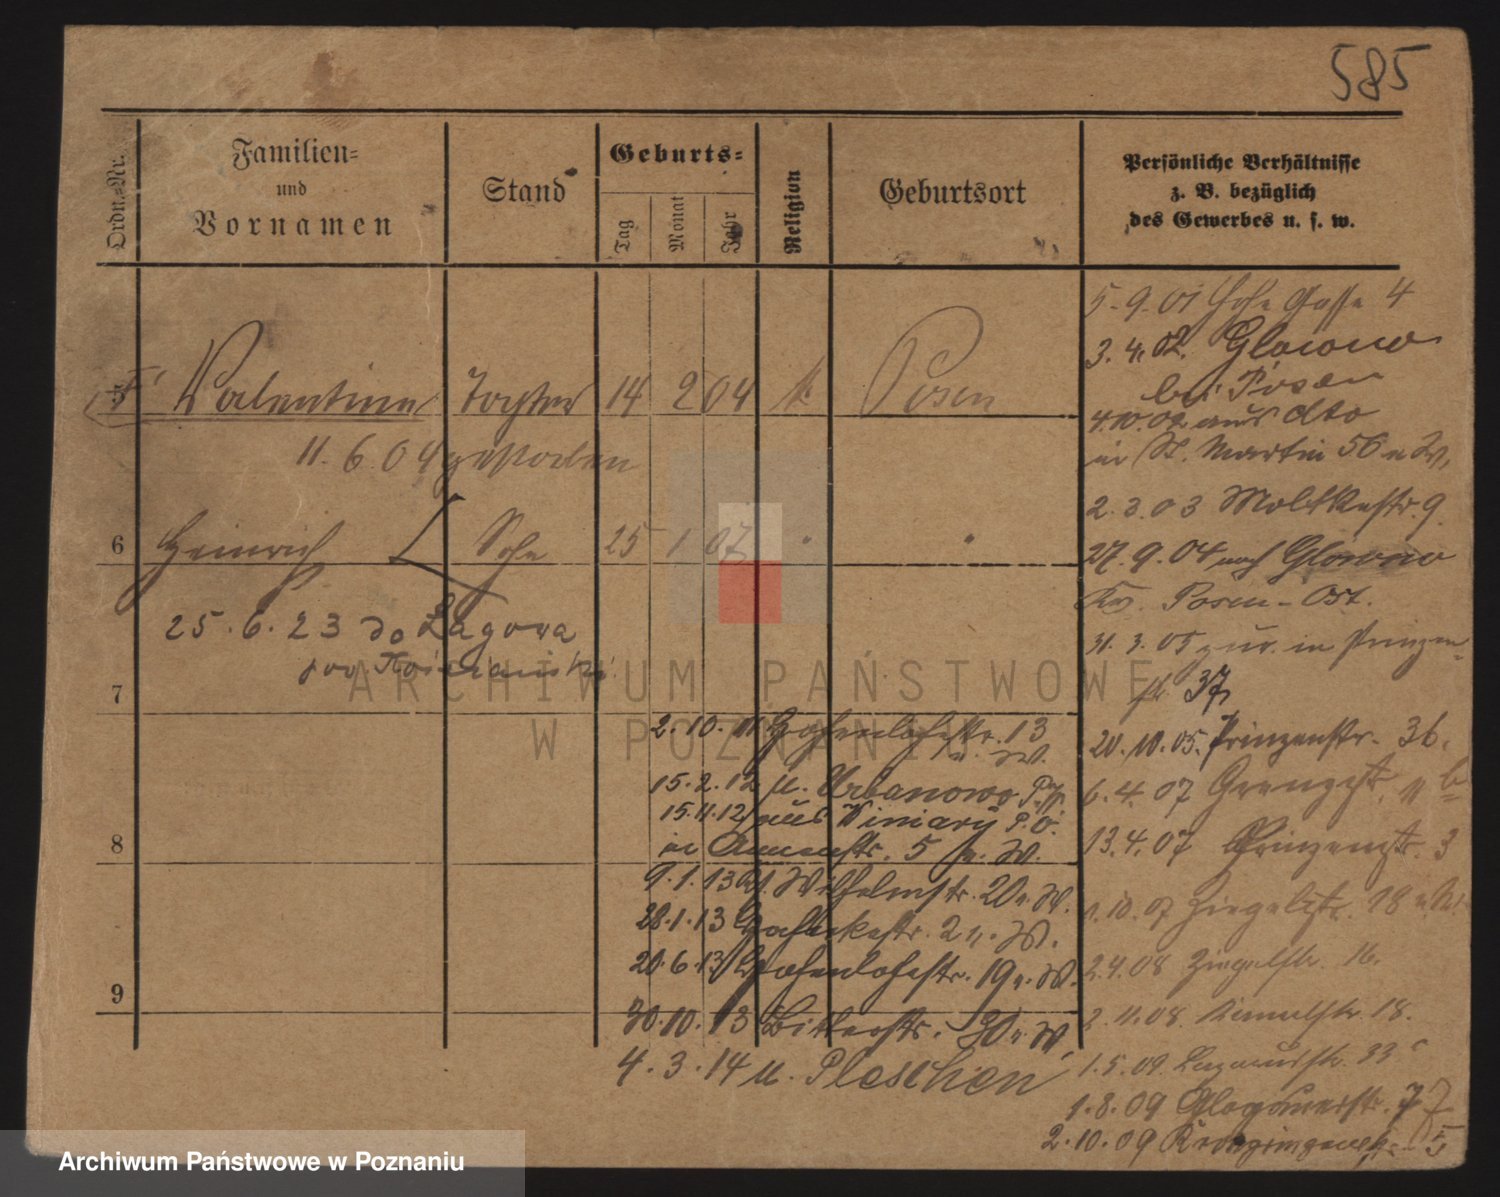 585
Ordn.-Nr.
Familien-
und
Vornamen
Stand
Geburts-
Tag
Monat
Jahr
Religion
Geburtsort
Persönliche Verhältnisse
z. B. bezüglich
des Gewerbes u. s. w.
5 Valentina Tochter 14 2 04 k. Posen
11.6.04 gestorben
6 Heinrich Sohn 25 1 07 " "
25.6.23 do Żagowa
7
8
9
2.10.11 Hohenlohestr. 13
u. W.
15.2.12 u. Urbanowo
15.11.12 aus Winiary P.O.
in Annenstr. 5 u. W.
9.1.13 Wilhelmstr. 20 u. W.
28.1.13 2 u. W.
20.6.13 Hohenlohestr. 19 u. W.
30.10.13 Bitterstr. 30 u. W.
4.3.14 u. Pleschen
5.9.01 Hohe Gasse 4
3.4.02. Glowno
bei Posen
4.10.02 aus dto
in St. Martin 56 u W.
2.3.03 Moltkestr. 9
27.9.04 nach Glowno
Kr. Posen-Ost.
31.3.05 zur. in Prinzen-
str. 37
20.10.05. Prinzenstr. 36.
6.4.07 Grenzstr.
13.4.07 Prinzenstr. 3
1.10.07 Ziegelstr. 18 u. W.
2.4.08 Ziegelstr. 16.
2.11.08 18.
1.5.09. Lazarusstr. 33
1.8.09 Glogauerstr. 77
2.10.09 Kronprinzenstr. 5
ARCHIWUM PAŃSTWOWE
W POZNANIU
Archiwum Państwowe w Poznaniu